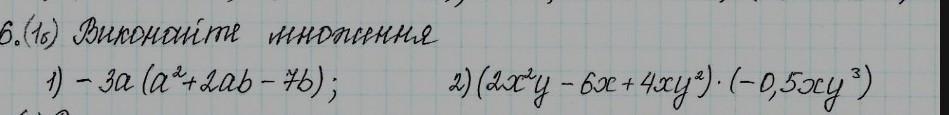 6. (1б) Виконайте множення
1) - 3a (a² + 2ab - 7b) ; 2) (2x²y - 6x + 4xy²) · (-0,5xy³)